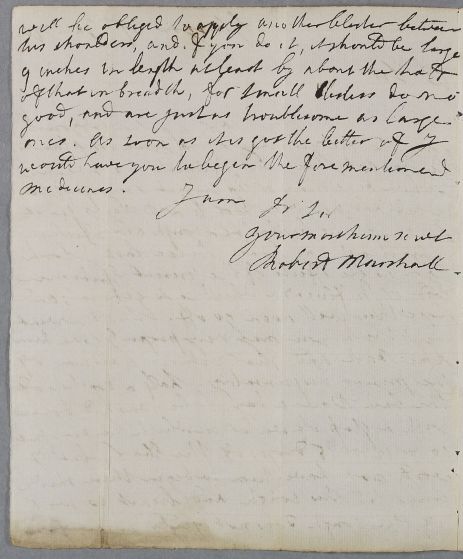 will be obliged to apply another blister between
his shoulders, and if you do it, it should be large
9 inches in length at least by about the half
of that in breadth, for small blisters do no
good, and are just as troublesome as large
ones. as soon as it is got the better of I
would have you to begin the forementioned
medicines.
I am Dr Sir
your most humle servt
Robert Marshall